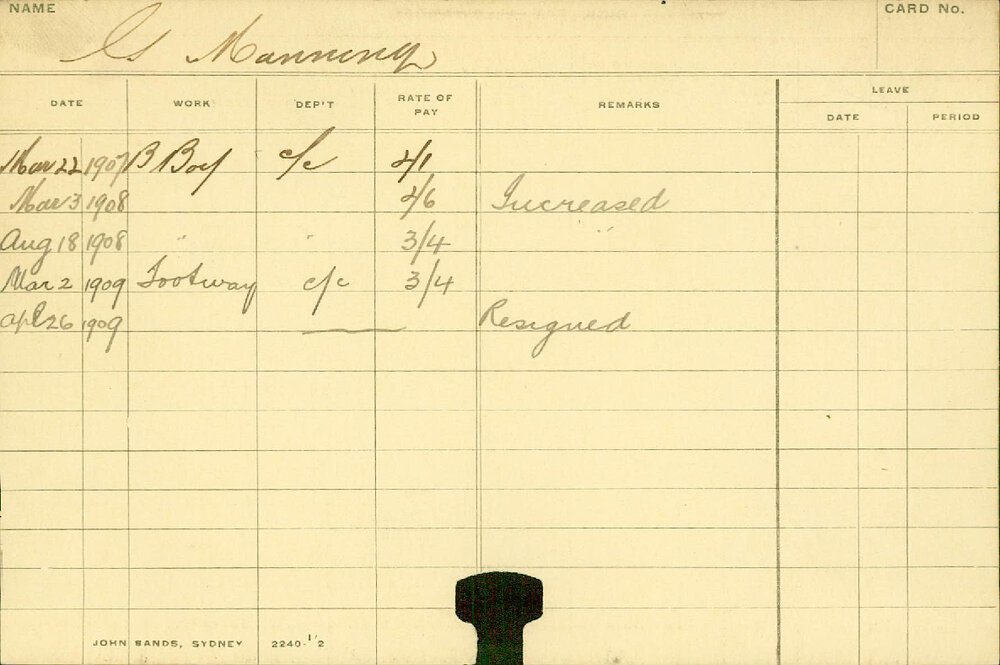 NAME CARD No.
G Manning
DATE WORK DEP'T RATE OF PAY REMARKS LEAVE
DATE PERIOD
Mar 22 1907 B Boy c/c 2/1
Mar 3 1908 2/6 Increased
Aug 18 1908 " " 3/4 "
Mar 2 1909 Footway c/c 3/4
Apl 26 1909 Resigned
JOHN SANDS, SYDNEY 2240-1/2